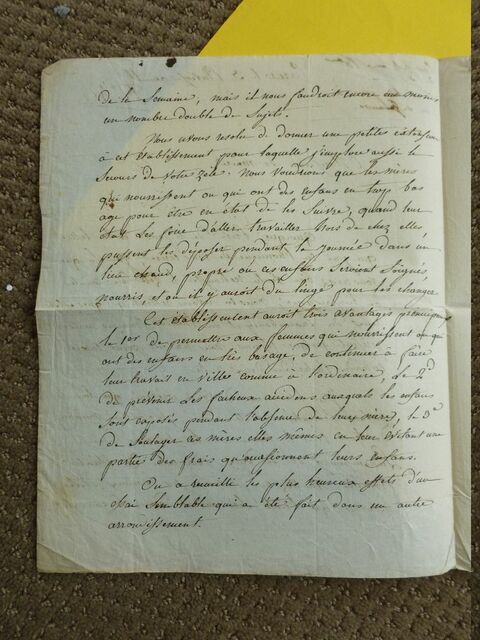 de la Semaine, mais il nous faudroit encore au moins
un nombre double de Sujets.
Nous avons resolu de donner une petites extension
à cet etablissement pour laquelle j'implore aussi le
Secours de votre zele. Nous voudrions que les mères
qui nourrissent ou qui ont des enfans en trop bas
age pour etre en état de les Suivre, quand leur
état les force d'aller travailler hors de chez elles,
pussent les déposer pendant la journée dans un
lieu chaud, propre ou ces enfans Seroient Soignés,
nourris, et où il y auroit du linge pour les changer
Cet établissement auroit trois avantages précieux,
le 1er de permettre aux femmes qui nourrissent ou qui
ont des enfans en très bas age, de continuer à faire
leur travail en villes comme à l'ordinaire, Le 2d
de prévenir les facheux accidens auxquels les enfans
Sont exposés pendant l'absence de leurs mères, le 3e
de Soulager ces mères elles mêmes en leur evitant une
partie des frais qu'occasionnent leurs enfans.
On a recueilli les plus heureux effets d'un
essai Semblable qui a été fait dans un autre
arrondissement.